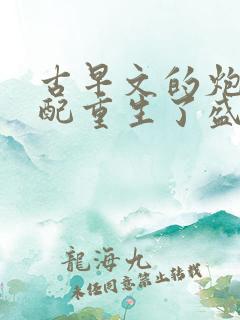 古早文的炮
配重生了盛
龍海九
未经同意禁止转载